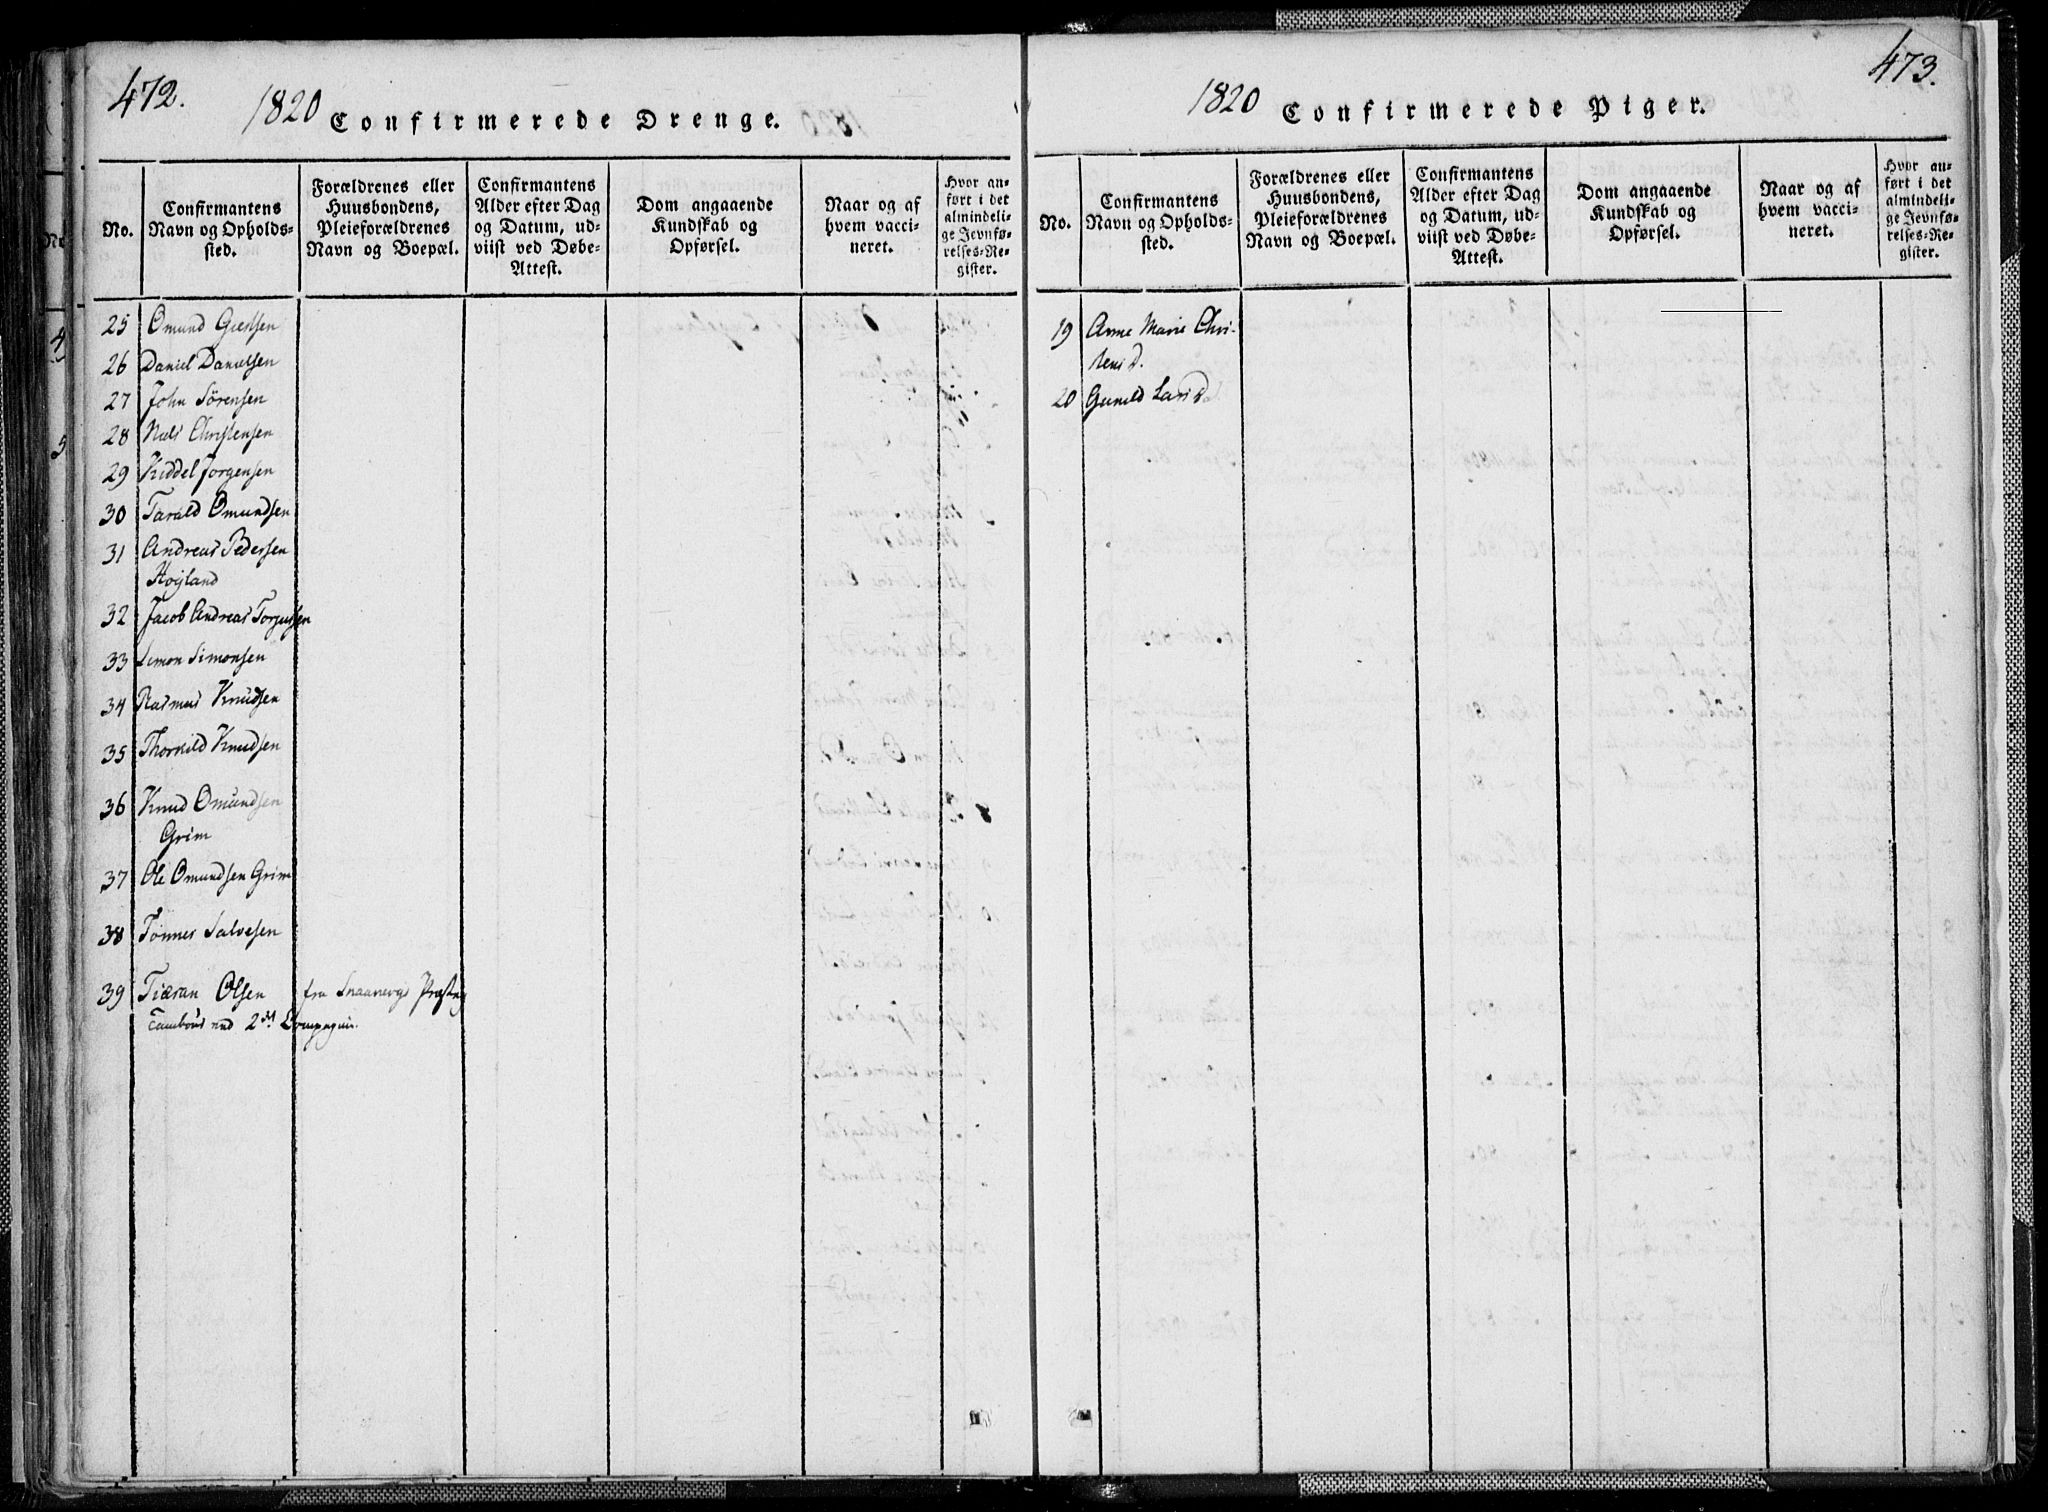 472.
1820 Confirmerede Drenge.
No.
Confirmantens
Navn og Opholds-
sted.
Forældrenes eller
Huusbondens,
Pleieforældrenes
Navn og Boepæl.
Confirmantens
Alder efter Dag
og Datum, ud-
viist ved Døbe-
Attest.
Dom angaaende
Kundskab og
Opførsel.
Naar og af
hvem vacci-
neret.
Hvor an-
ført i det
almindeli-
ge Jevnfø-
relses-Re-
gister.
25 Omund
26 Daniel Danielsen
27 John Sörensen
28 Niels Christensen
29 Kiddel Jorgensen
30 Tarald Omundsen
31 Andreas Pedersen
Høyland
32 Jacob Andreas Torjussen
33 Simon Simonsen
34 Rasmus Knudsen
35 Thorkild Knudsen
36 Knud Omundsen
Grim
37 Ole Omundsen Grim
38 Tonnes Salvesen
39 Tiæran Olsen fra
2det Compagnie.
473.
1820 Confirmerede Piger.
No.
Confirmantens
Navn og Opholds-
sted.
Forældrenes eller
Huusbondens,
Pleieforældrenes
Navn og Boepæl.
Confirmantens
Alder efter Dag
og Datum, ud-
viist ved Døbe-
Attest.
Dom angaaende
Kundskab og
Opførsel.
Naar og af
hvem vacci-
neret.
Hvor an-
ført i det
almindeli-
ge Jevnfø-
relses-Re-
gister.
19 Anne Marie Chri-
stensd.
20 Gunild Larsd